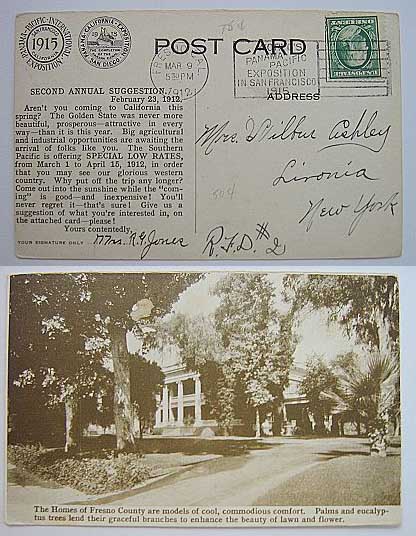 PANAMA-PACIFIC-INTERNATIONAL EXPOSITION
SAN FRANCISCO
1915
PANAMA-CALIFORNIA-EXPOSITION
SAN DIEGO
75¢
POST CARD
MAR 9
5 PM
1912
PANAMA-PACIFIC
EXPOSITION
IN SAN FRANCISCO
1915
ADDRESS
SECOND ANNUAL SUGGESTION.
February 23, 1912.
Aren't you coming to California this
spring? The Golden State was never more
beautiful, prosperous—attractive in every
way—than it is this year. Big agricultural
and industrial opportunities are awaiting the
arrival of folks like you. The Southern
Pacific is offering SPECIAL LOW RATES,
from March 1 to April 15, 1912, in order
that you may see our glorious western
country. Why put off the trip any longer?
Come out into the sunshine while the "com-
ing" is good—and inexpensive! You'll
never regret it—that's sure! Give us a
suggestion of what you're interested in, on
the attached card—please!
Yours contentedly,
YOUR SIGNATURE ONLY Mrs. R. E. Jones
Mrs. D Wilbur Ashley
Livonia
50¢
New York
R.F.D. #2
The Homes of Fresno County are models of cool, commodious comfort. Palms and eucalyp-
tus trees lend their graceful branches to enhance the beauty of lawn and flower.